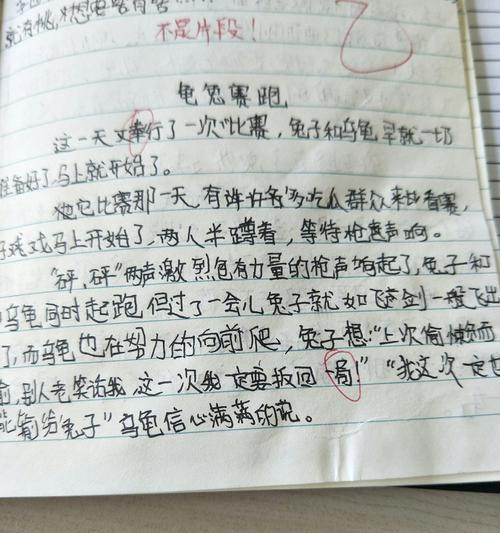 就有桃,
不是片段!
乙
龟兔赛跑
这一天又举行了一次"比赛,兔子和乌龟早就一切
准备好了马上就开始了。
比赛那一天,有许多吃瓜群众来比看赛,
好戏马上开始了,两人半蹲着,等待枪声响。
"砰,砰"两声激烈包有力量的枪声响起了,兔子和
乌龟同时起跑,但过了一会儿兔子就如飞剑一般飞出
了,而乌龟也在努力的向前爬,兔子想:"上次偷懒而
输,别人老笑话我,这一次我一定要扳回一局!""我这次一定也
能输给兔子"乌龟信心满满的说。